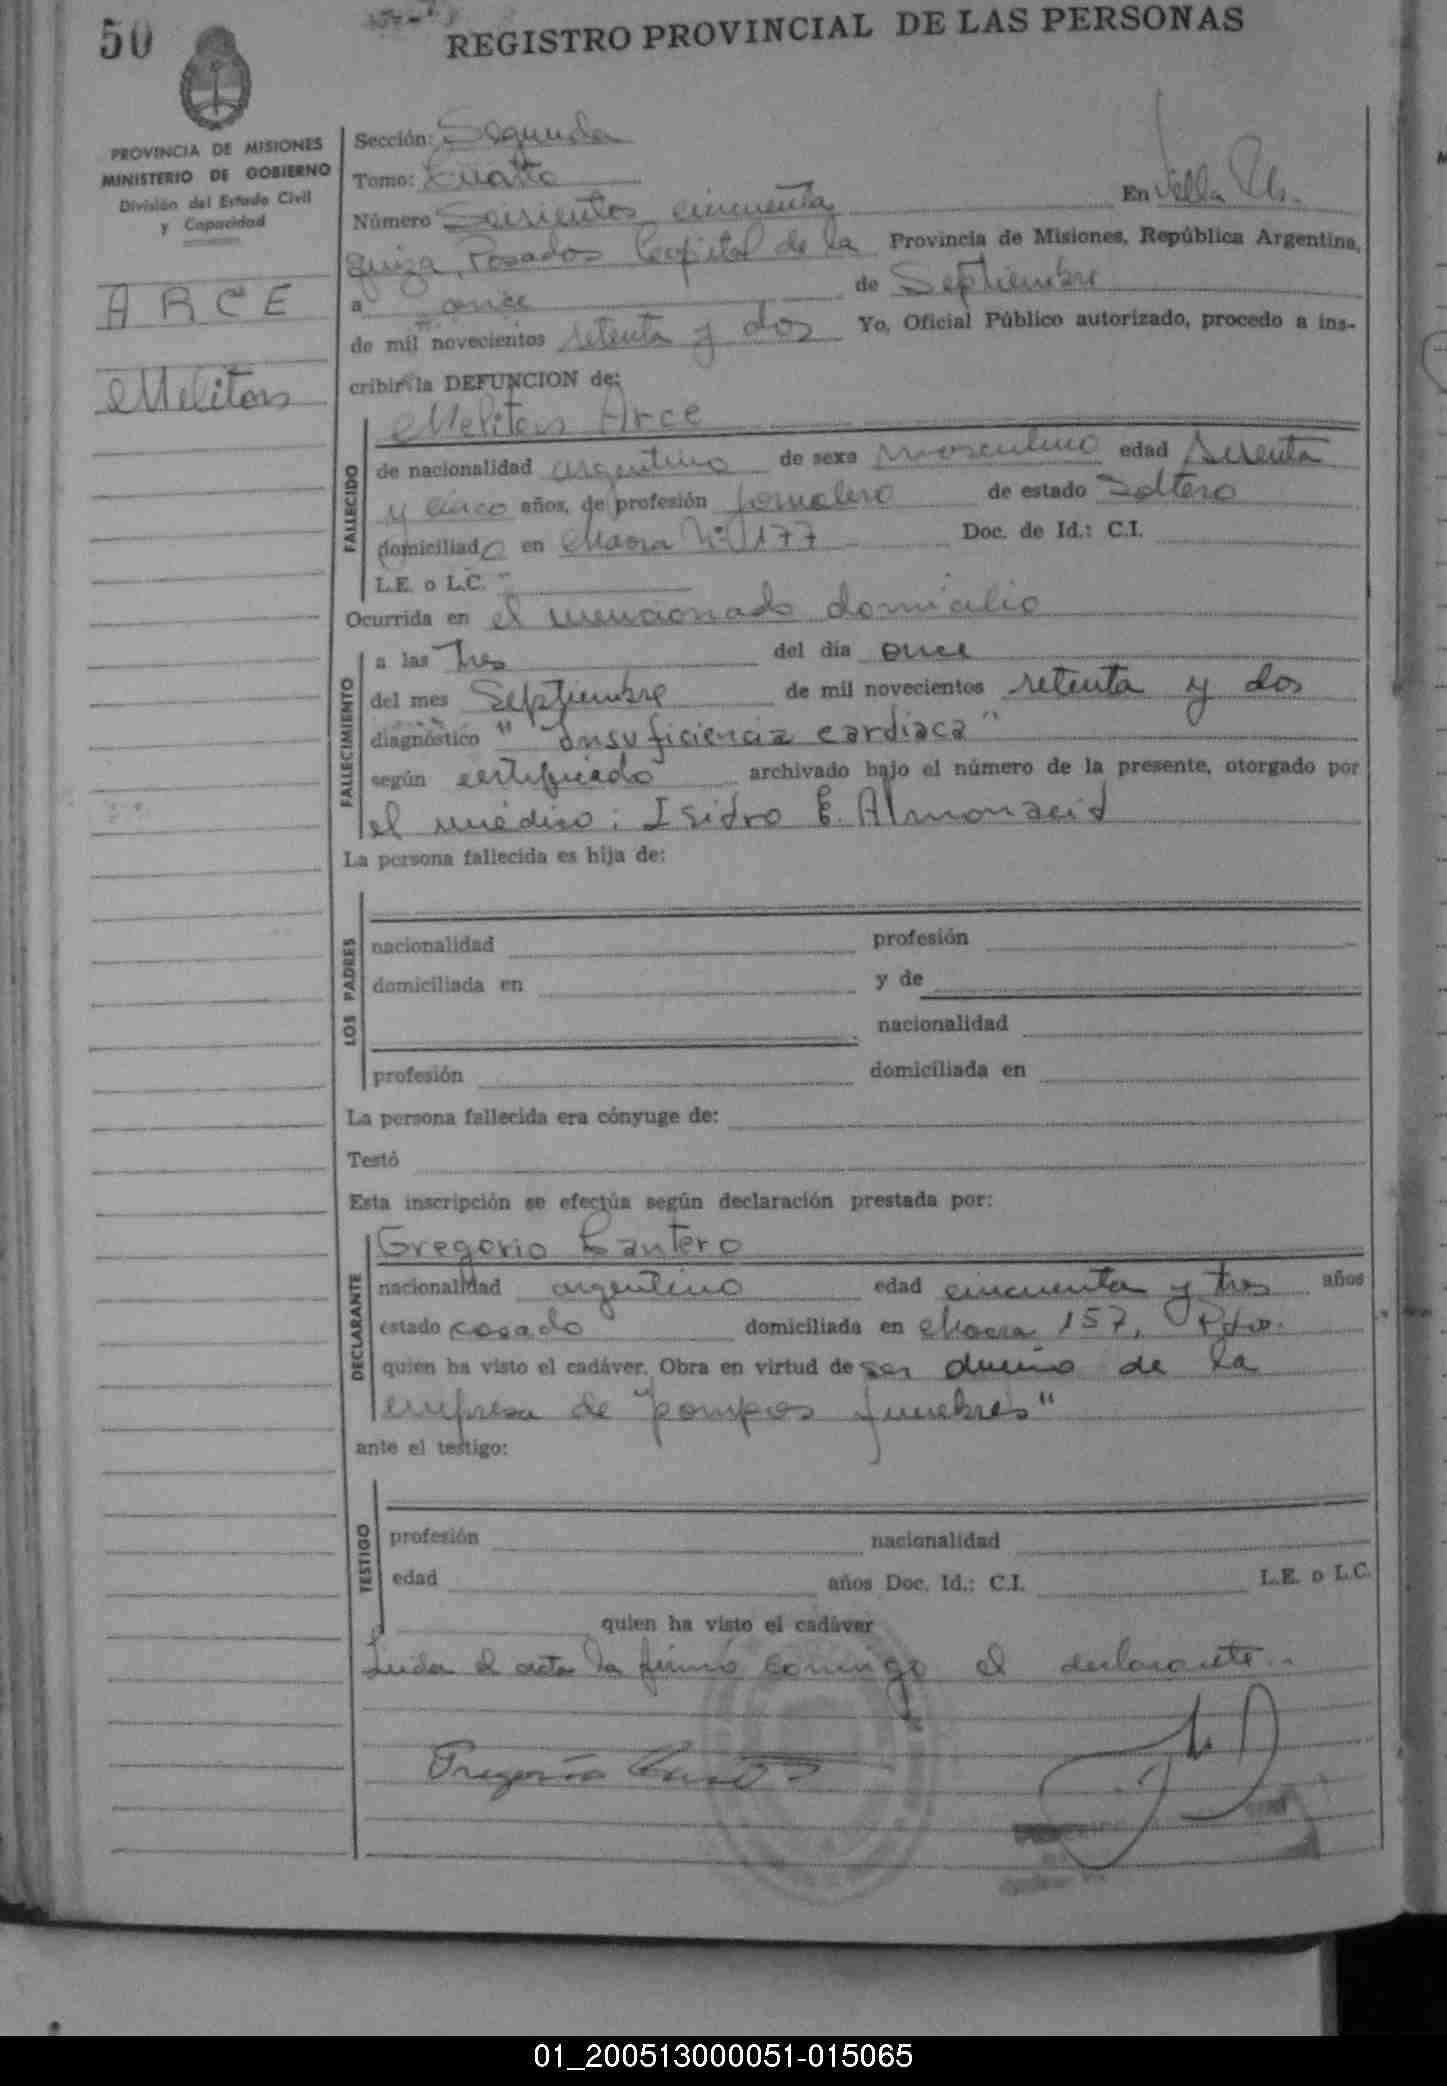 50
REGISTRO PROVINCIAL DE LAS PERSONAS
PROVINCIA DE MISIONES
MINISTERIO DE GOBIERNO
División del Estado Civil
y Capacidad
ARCE
Meliton
Sección: Segunda
Tomo: Cuarto
Número Seisientos cincuenta En Villa Ur-
quiza, Posadas Capital de la Provincia de Misiones, República Argentina,
a once de Septiembre
de mil novecientos setenta y dos Yo, Oficial Público autorizado, procedo a ins-
cribir la DEFUNCION de:
Meliton Arce
FALLECIDO
de nacionalidad argentino de sexo masculino edad
y cinco años, de profesión jornalero de estado Soltero
domiciliado en chacra Nº 177 Doc. de Id.: C.I.
L.E. o L.C.
Ocurrida en el mencionado domicilio
FALLECIMIENTO
a las tres del día once
del mes Septiembre de mil novecientos setenta y dos
diagnóstico "Insuficiencia cardiaca"
según certificado archivado bajo el número de la presente, otorgado por
el médico: Isidro E. Almonacid
La persona fallecida es hija de:
LOS PADRES
nacionalidad profesión
domiciliada en y de
nacionalidad
profesión domiciliada en
La persona fallecida era cónyuge de:
Testó
Esta inscripción se efectúa según declaración prestada por:
DECLARANTE
Gregorio Cantero
nacionalidad argentino edad cincuenta y tres años
estado casado domiciliada en chacra 157, Pdas.
quien ha visto el cadáver. Obra en virtud de ser dueño de la
empresa de "pompas funebres"
ante el testigo:
TESTIGO
profesión nacionalidad
edad años Doc. Id.: C.I. L.E. o L.C.
quien ha visto el cadáver
Leida el acta la firmó conmigo el declarante.-
Gregorio Cantero
01_200513000051-015065